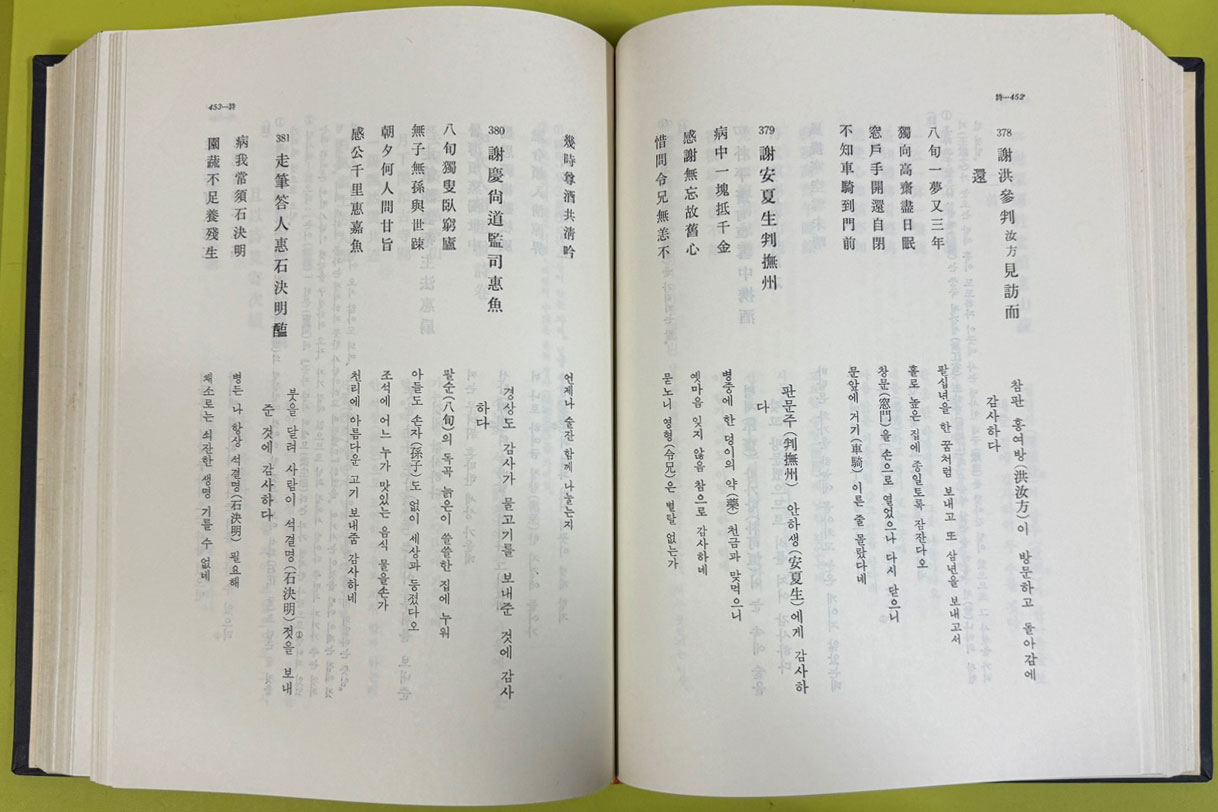 詩—452
378 謝洪參判汝方見訪而
還
八旬一夢又三年
獨向高齋盡日眠
窓戶手開還自閉
不知車騎到門前
379 謝安夏生判撫州
病中一塊抵千金
感謝無忘故舊心
惜問令兄無恙不
참판 홍여방(洪汝方)이 방문하고 돌아감에
감사하다
팔십년을 한 꿈처럼 보내고 또 삼년을 보내고서
홀로 높은 집에 종일토록 잠잔다오
창문(窓門)을 손으로 열었으나 다시 닫으니
문앞에 거기(車騎) 이른 줄 몰랐다네
판문주(判撫州) 안하생(安夏生)에게 감사하
다
병중에 한 덩이의 약(藥) 천금과 맞먹으니
옛마음 잊지 않음 참으로 감사하네
묻노니 영형(令兄)은 별탈 없는가
453—詩
幾時尊酒共清吟
380 謝慶尙道監司惠魚
八旬獨叟臥窮廬
無子無孫與世踈
朝夕何人問甘旨
感公千里惠嘉魚
381 走筆答人惠石決明醢
病我常須石決明
園蔬不足養殘生
언제나 술잔 함께 나눌는지
경상도 감사가 물고기를 보내준 것에 감사
하다
팔순(八旬)의 독곡 늙은이 쓸쓸한 집에 누워
아들도 손자(孫子)도 없이 세상과 등졌다오
조석에 어느 누가 맛있는 음식 물을손가
천리에 아름다운 고기 보내줌 감사하네
붓을 달려 사람이 석결명(石決明)①젓을 보내
준 것에 감사하다
병든 나 항상 석결명(石決明) 필요해
채소로는 쇠잔한 생명 기를 수 없네